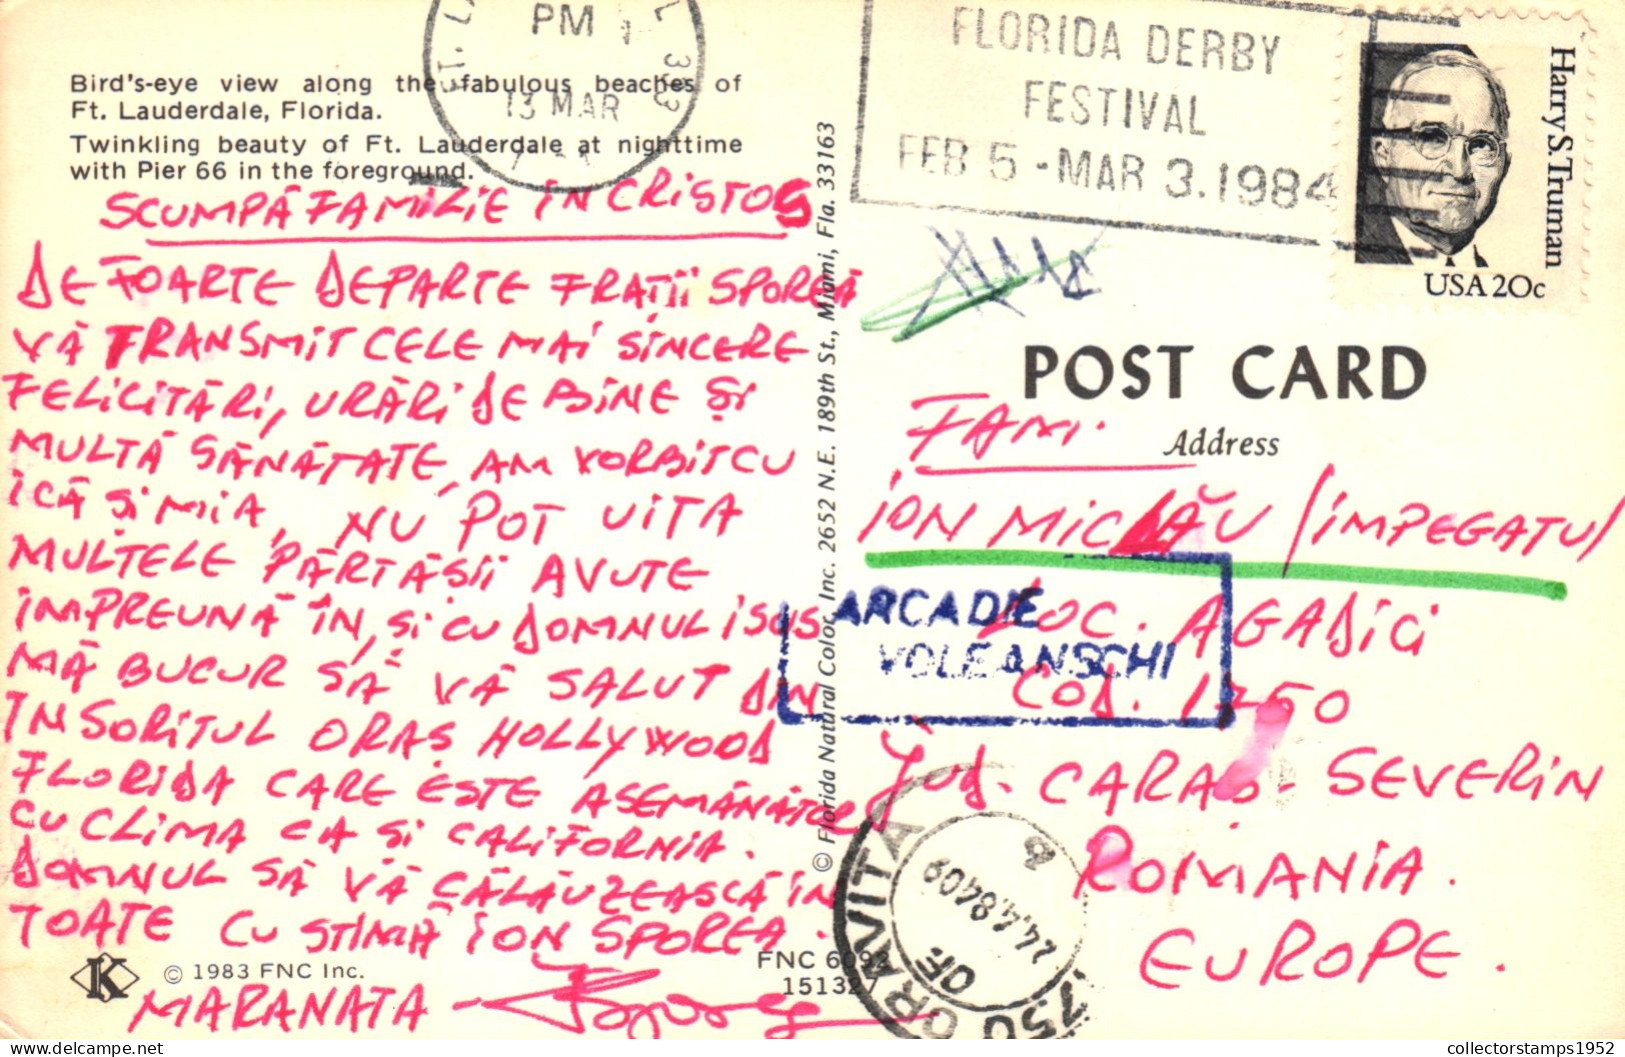 Bird's-eye view along the fabulous beaches of
Ft. Lauderdale, Florida.
Twinkling beauty of Ft. Lauderdale at nighttime
with Pier 66 in the foreground.
SCUMPĂ FAMILIE ÎN CRISTOS
DE FOARTE DEPARTE FRAȚII SPOREA
VĂ TRANSMIT CELE MAI SINCERE
FELICITĂRI, URĂRI DE BINE ȘI
MULTĂ SĂNĂTATE, AM VORBIT CU
ICĂ ȘI MIA, NU POT UITA
MULTELE PĂRTĂȘII AVUTE
IMPREUNĂ ÎN, ȘI CU DOMNUL ISUS
MĂ BUCUR SĂ VĂ SALUT DIN
ÎNSORITUL ORAȘ HOLLYWOOD
FLORIDA CARE ESTE ASEMĂNĂTOR
CU CLIMA CA ȘI CALIFORNIA.
DOMNUL SĂ VĂ CĂLĂUZEASCĂ ÎN
TOATE CU STIMĂ ION SPOREA.
MARANATA
K © 1983 FNC Inc.
FNC 6092
151327
© Florida Natural Color, Inc. 2652 N.E. 189th St., Miami, Fla. 33163
PM
13 MAR
FL 333
FLORIDA DERBY
FESTIVAL
FEB 5 - MAR 3. 1984
Harry S. Truman
USA 20c
POST CARD
Address
FAM.
ION MICLĂU /ÎMPEGATU/
LOC. AGADICI
COD. 1750
JUD. CARAȘ-SEVERIN
ROMANIA.
EUROPE.
ARCADIE
VOLEANSCHI
ORAVITA
OF.
24.4.8409
8
collectorstamps1952